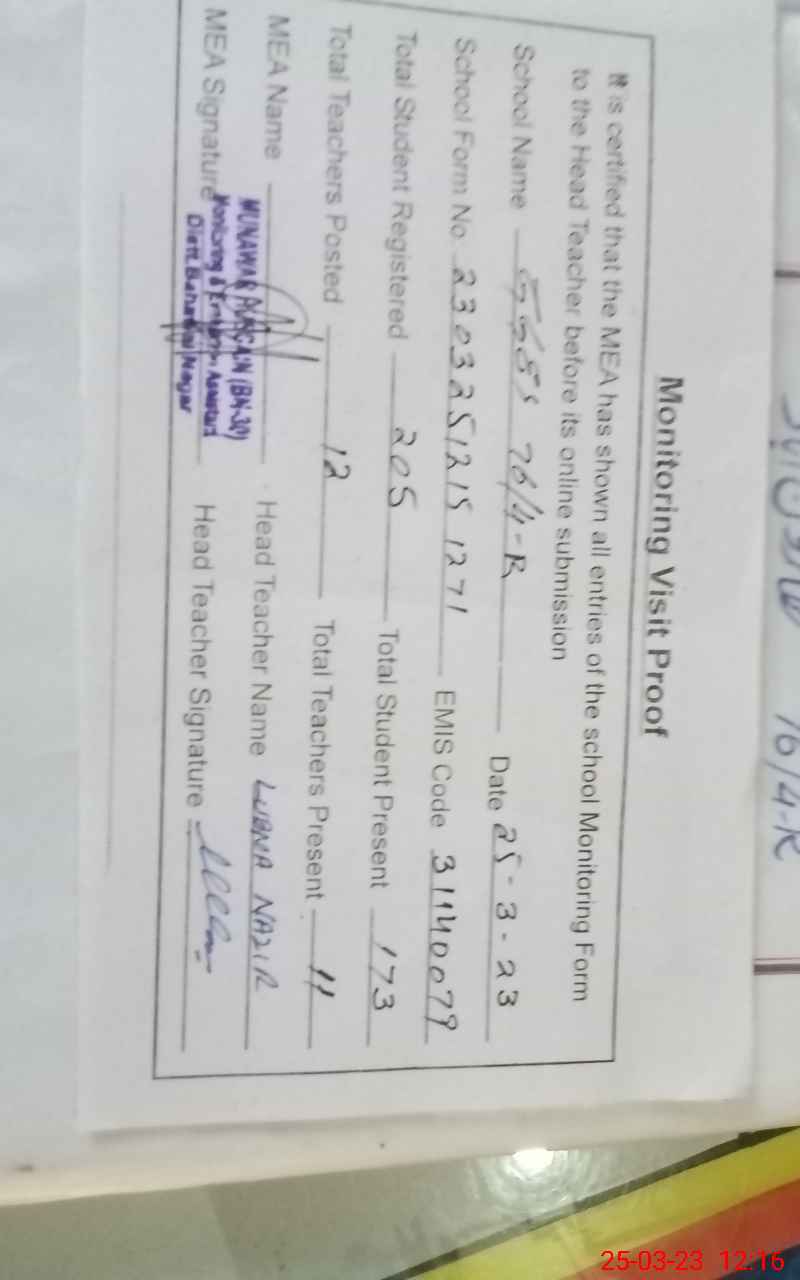 76/4-R
Monitoring Visit Proof
It is certified that the MEA has shown all entries of the school Monitoring Form
to the Head Teacher before its online submission
School Name GGES 76/4-R Date 25-3-23
School Form No. 2303251215 1271 EMIS Code 31140079
Total Student Registered 205 Total Student Present 173
Total Teachers Posted 12 Total Teachers Present 11
MEA Name MUNAWAR HUSSAIN (BN-30) Head Teacher Name LUBNA NAZIR
MEA Signature Monitoring & Evaluation Assistant Head Teacher Signature
Distt. Bahawal Nagar
25-03-23 12:16